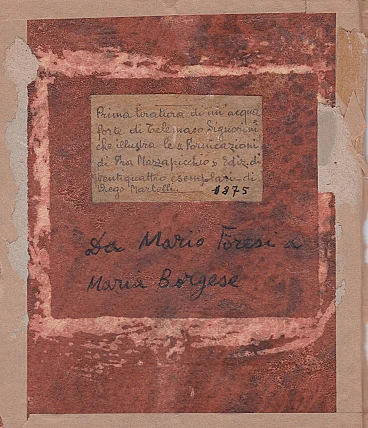 Prima tiratura di un'acqua
forte di Telemaco Signorini
che illustra le "Fornicazioni
di Fra Mazzapicchio" Ediz. di
ventiquattro esemplari - di
Diego Martelli. 1875
Da Mario Foresi a
Maria Borgese